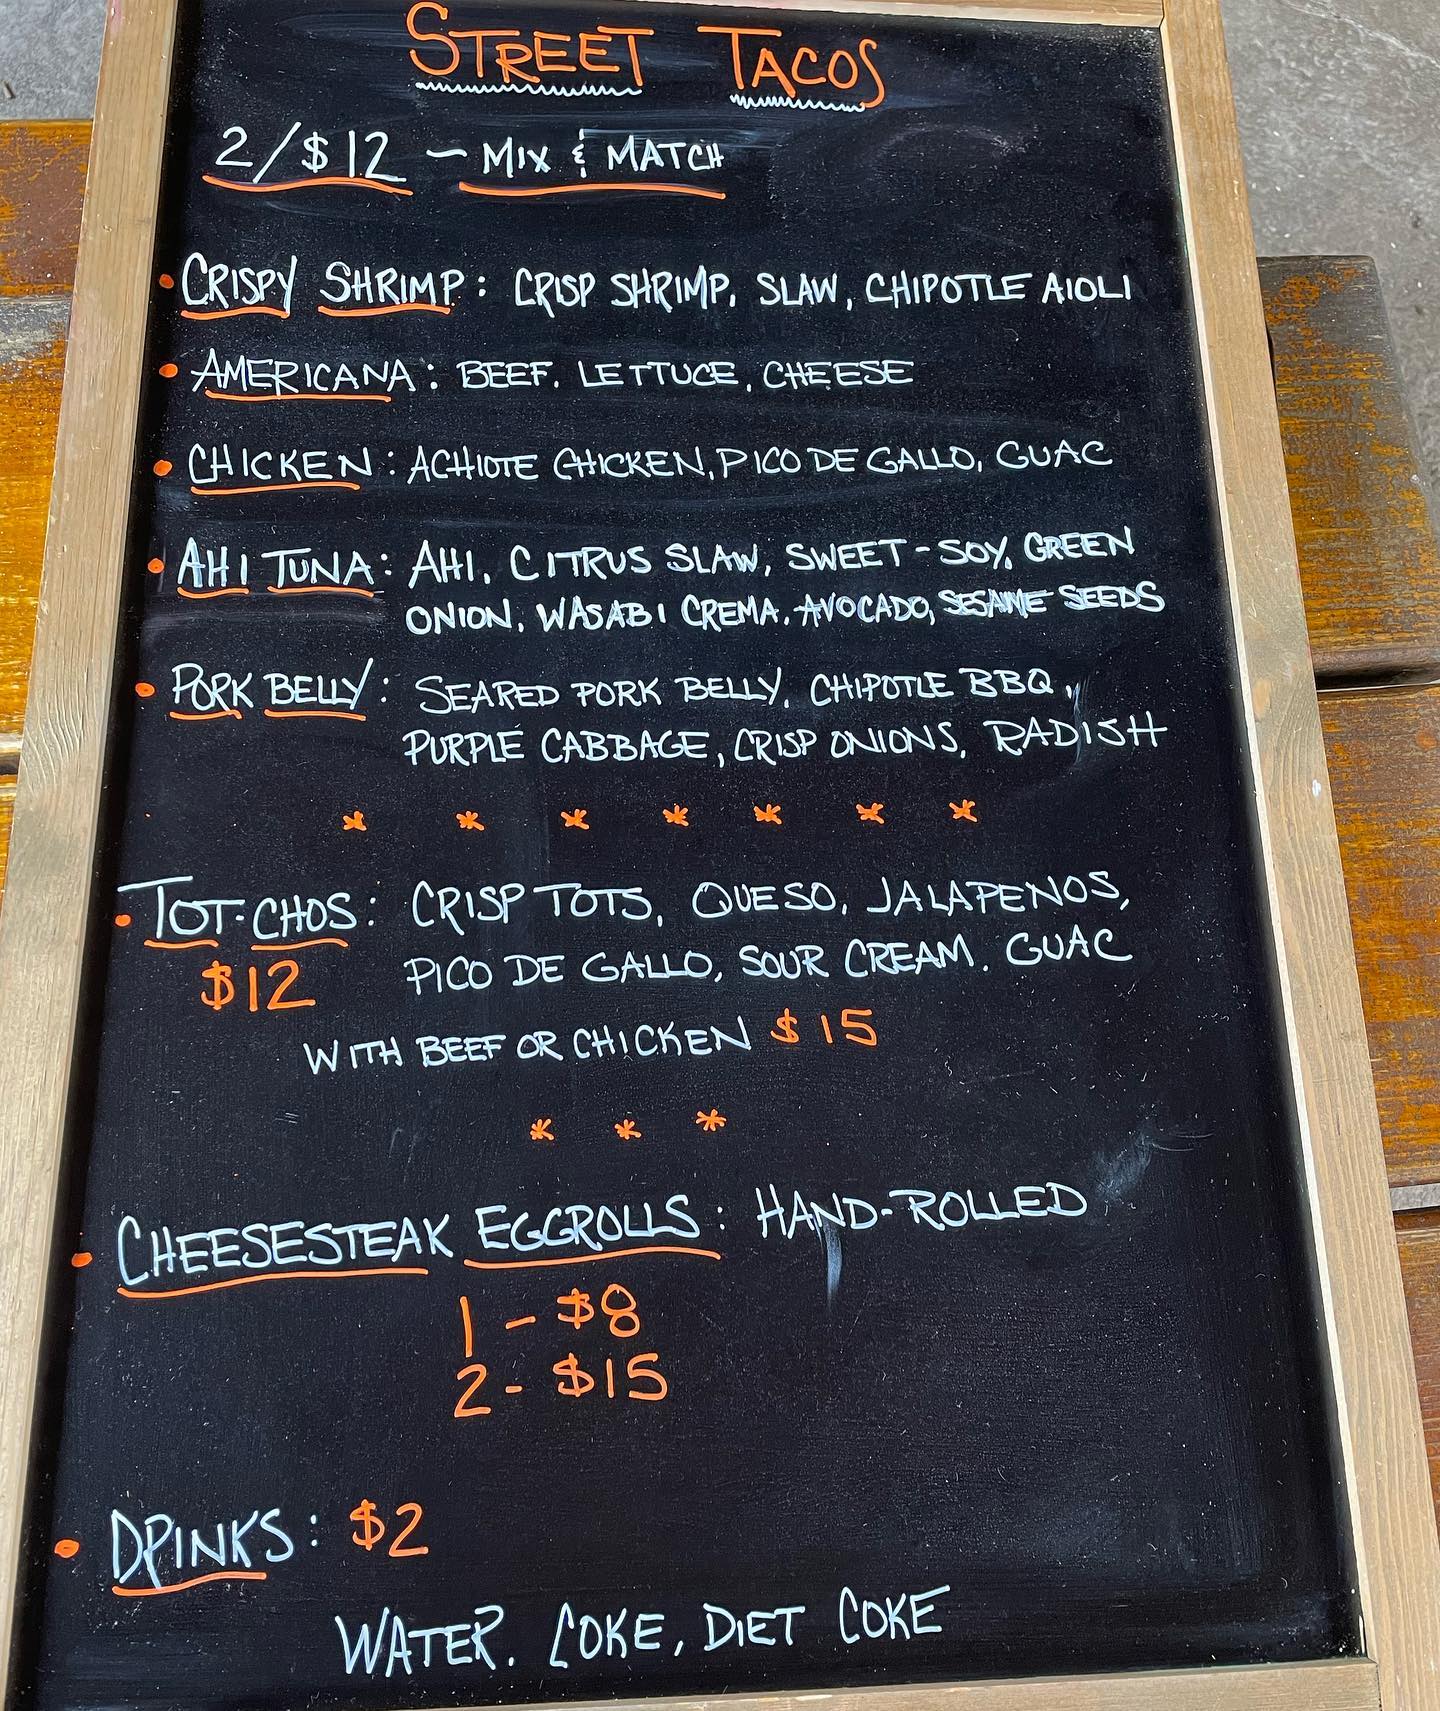 STREET TACOS
2/$12 - MIX & MATCH
• CRISPY SHRIMP: CRISP SHRIMP, SLAW, CHIPOTLE AIOLI
• AMERICANA: BEEF, LETTUCE, CHEESE
• CHICKEN: ACHIOTE CHICKEN, PICO DE GALLO, GUAC
• AHI TUNA: AHI, CITRUS SLAW, SWEET-SOY, GREEN
ONION, WASABI CREMA, AVOCADO, SESAME SEEDS
• PORK BELLY: SEARED PORK BELLY, CHIPOTLE BBQ,
PURPLE CABBAGE, CRISP ONIONS, RADISH
* * * * * * *
• TOT-CHOS: CRISP TOTS, QUESO, JALAPENOS,
$12 PICO DE GALLO, SOUR CREAM, GUAC
WITH BEEF OR CHICKEN $15
* * *
• CHEESESTEAK EGGROLLS: HAND-ROLLED
1 - $8
2 - $15
• DRINKS: $2
WATER, COKE, DIET COKE